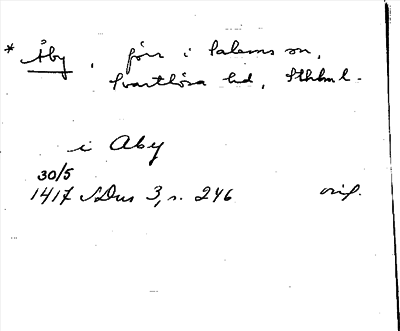 * Åby, förr i Salems sn,
Svartlösa hd, Sthlms l.
i Aby
30/5
1417 SDns 3, s. 246 orig.